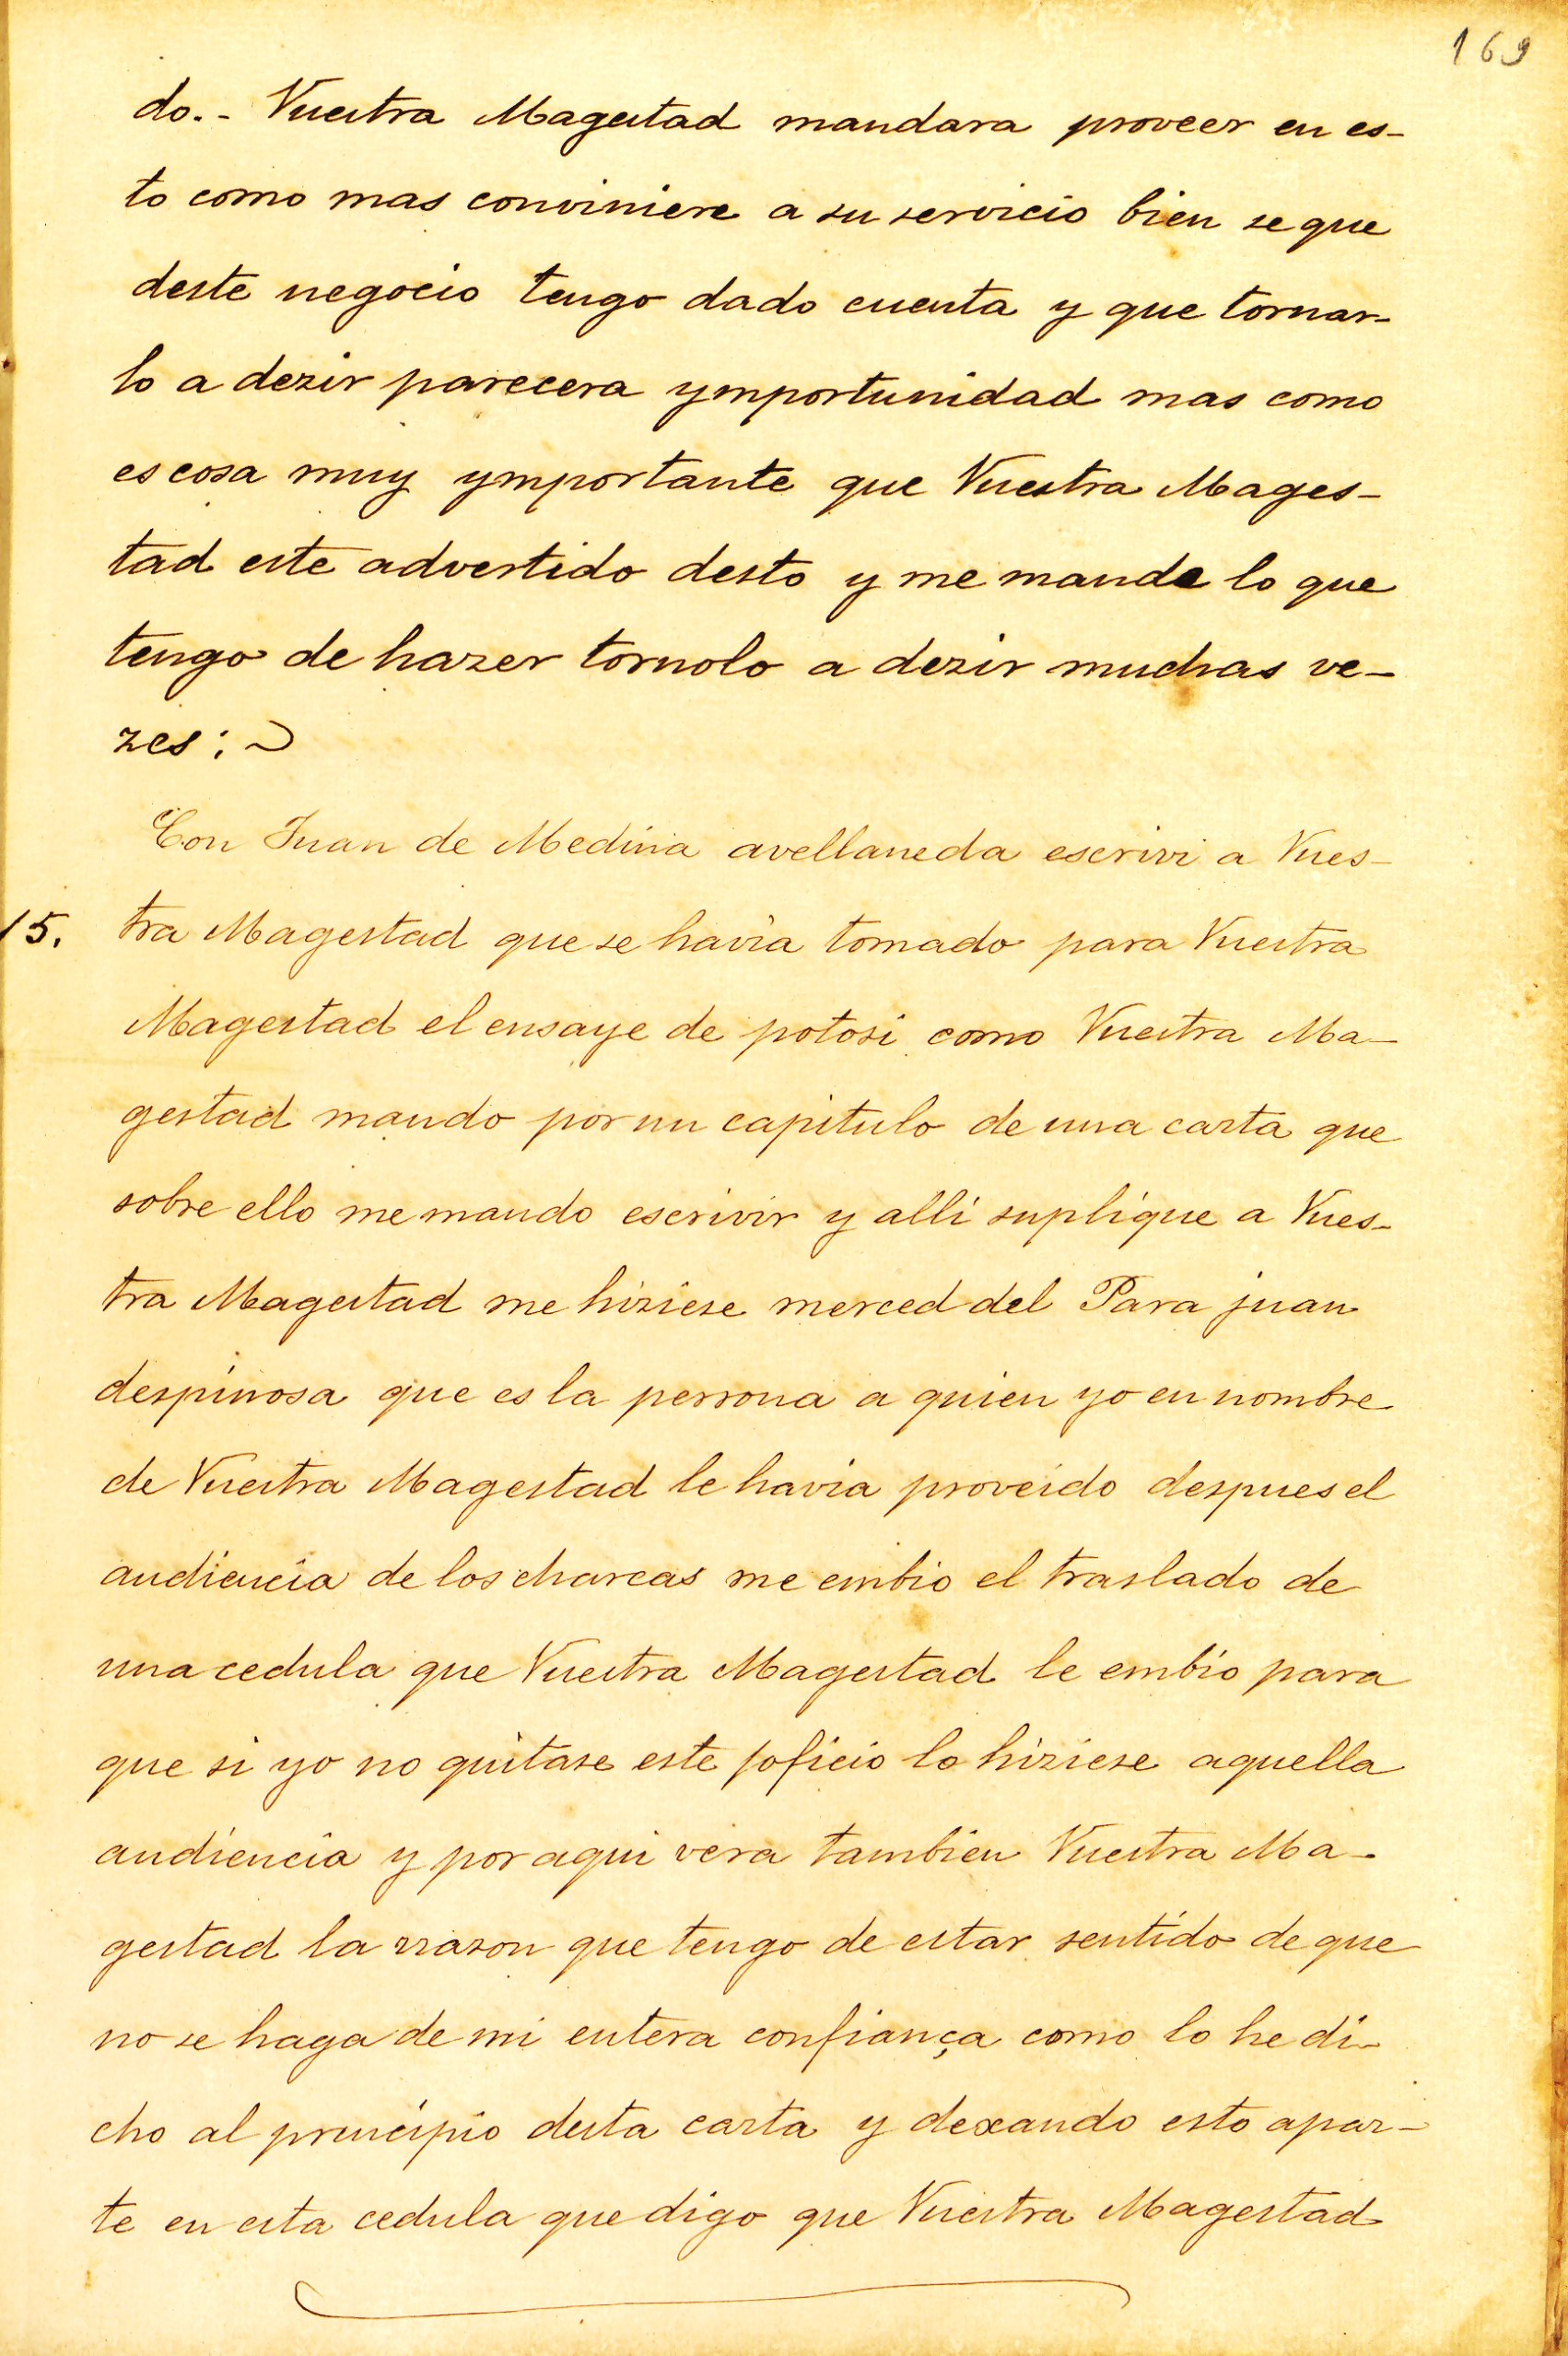 169
do. - Vuestra Magestad mandara proveer en es-
to como mas conviniere a su servicio bien se que
deste negocio tengo dado cuenta y que tornar-
lo a dezir parecera ymportunidad mas como
es cosa muy ymportante que Vuestra Mages-
tad este advertido desto y me mande lo que
tengo de hazer tornolo a dezir muchas ve-
zes:~
Con Juan de Medina avellaneda escrivi a Vues-
15. tra Magestad que se havia tomado para Vuestra
Magestad el ensaye de potosi como Vuestra Ma-
gestad mando por un capitulo de una carta que
sobre ello me mando escrivir y alli suplique a Vues-
tra Magestad me hiziese merced del Para juan
despinosa que es la persona a quien yo en nombre
de Vuestra Magestad le havia proveido despues el
audiencia de los charcas me embio el traslado de
una cedula que Vuestra Magestad le embio para
que si yo no quitase este oficio lo hiziese aquella
audiencia y por aqui vera tambien Vuestra Ma-
gestad la rrazon que tengo de estar sentido de que
no se haga de mi entera confiança como lo he di-
cho al principio desta carta y dexando esto apar-
te en esta cedula que digo que Vuestra Magestad